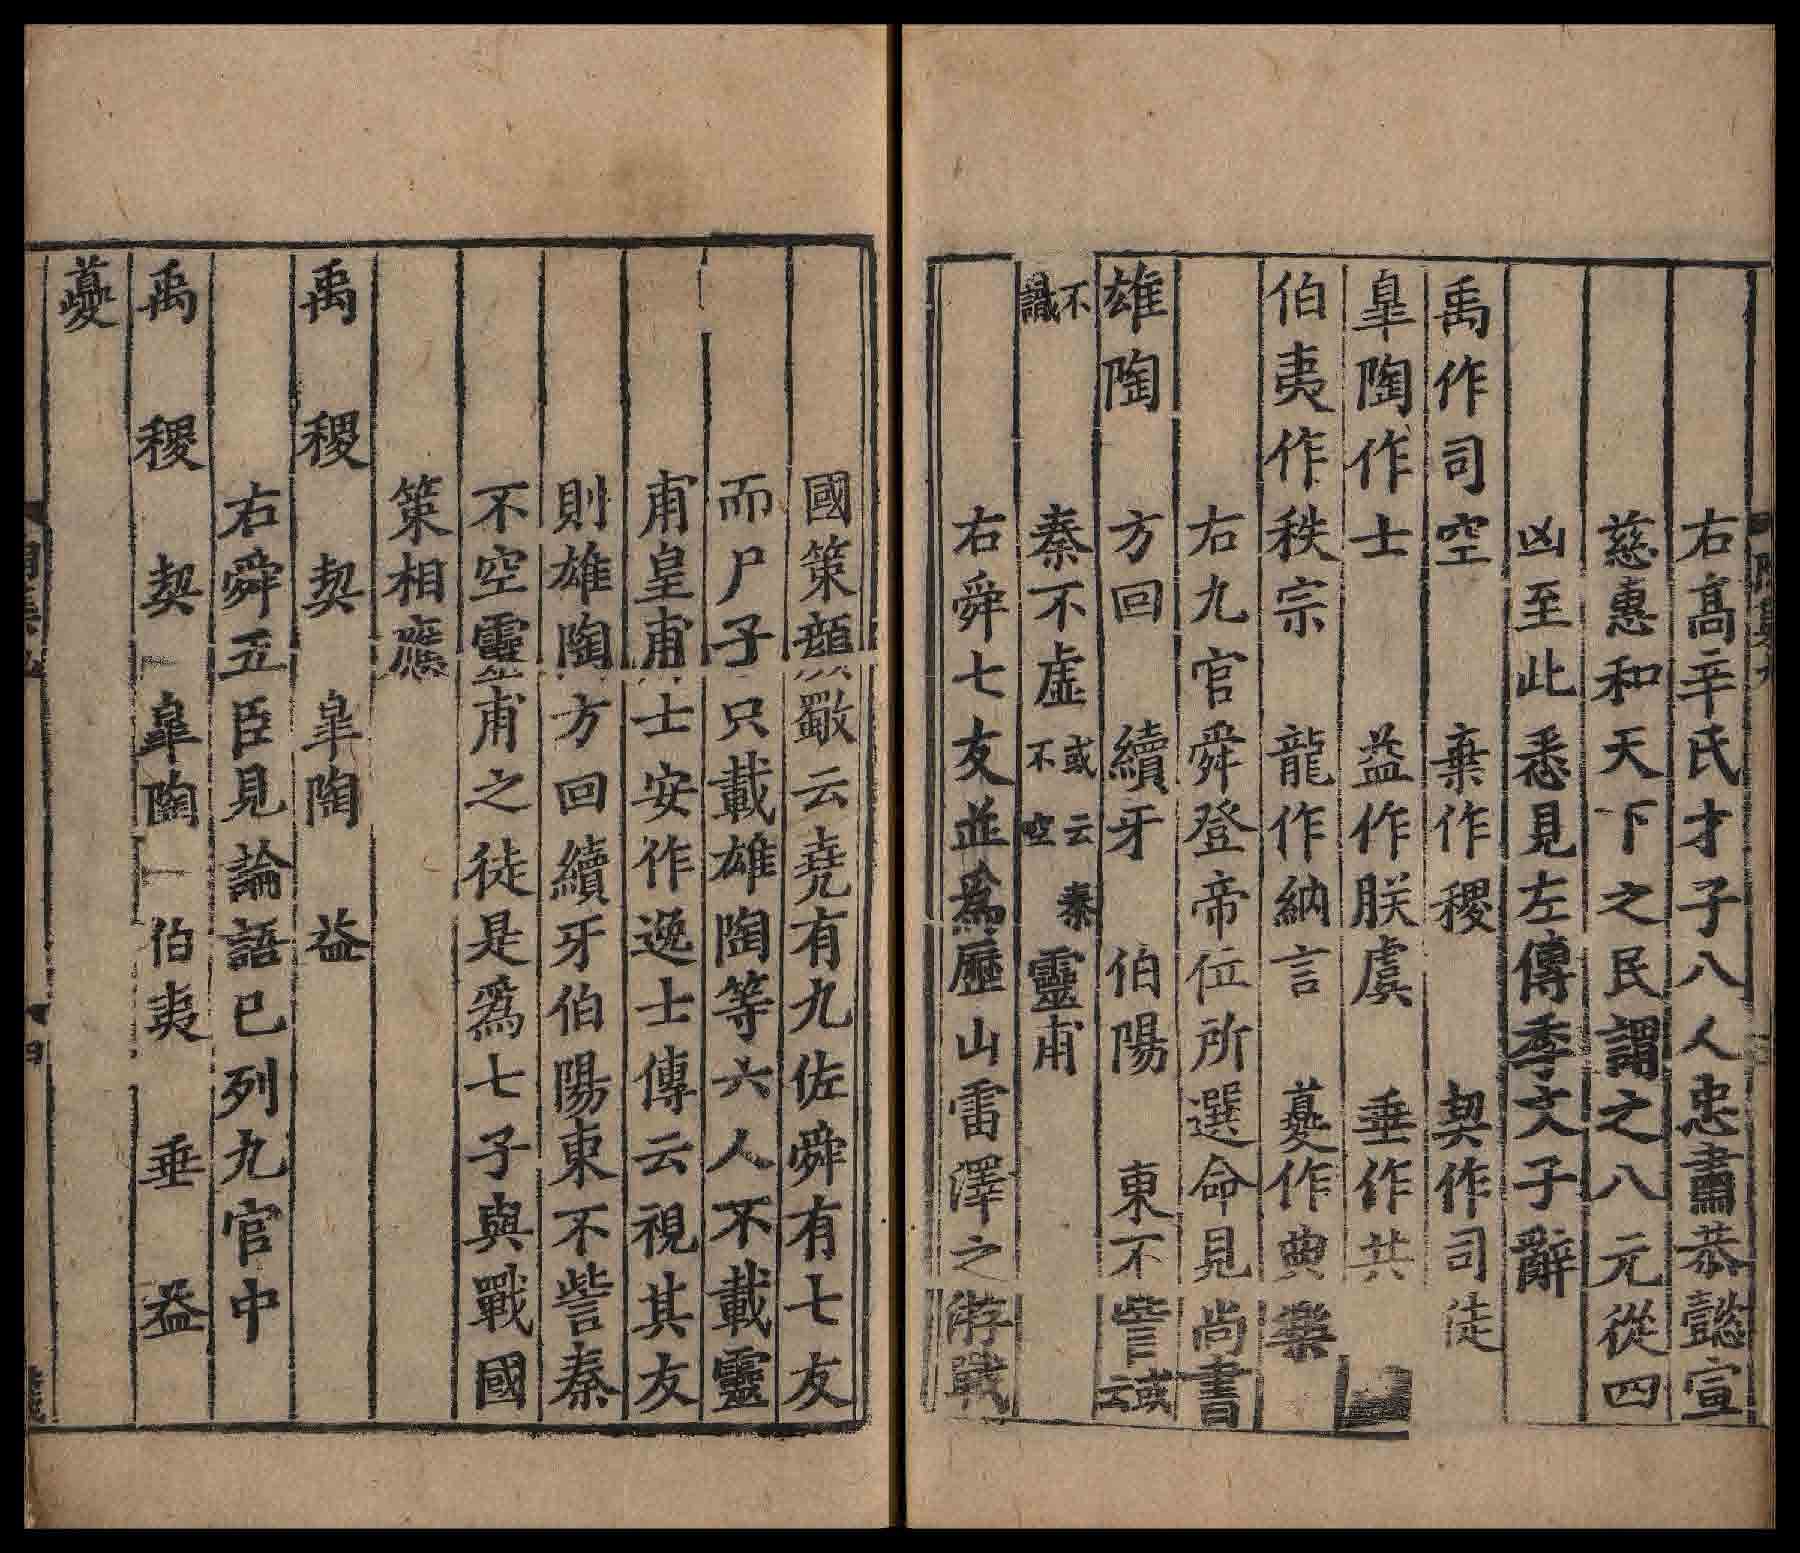 右高辛氏才子八人忠肅恭懿宣
慈惠和天下之民謂之八元從四
凶至此悉見左傳季文子辭
禹作司空 棄作稷 契作司徒
皐陶作士 益作朕虞 垂作共
伯夷作秩宗 龍作納言 夔作典樂
右九官舜登帝位所選命見尚書
雄陶 方回 續牙 伯陽 東不訾或云
不識 秦不虛或云秦不空 靈甫
右舜七友並爲歷山雷澤之游戰
國策顔歜云堯有九佐舜有七友
而尸子只載雄陶等六人不載靈
甫皇甫士安作逸士傳云視其友
則雄陶方回續牙伯陽東不訾秦
不空靈甫之徒是爲七子與戰國
策相應
禹 稷 契 皐陶 益
右舜五臣見論語已列九官中
禹 稷 契 皐陶 伯夷 垂 益
夔